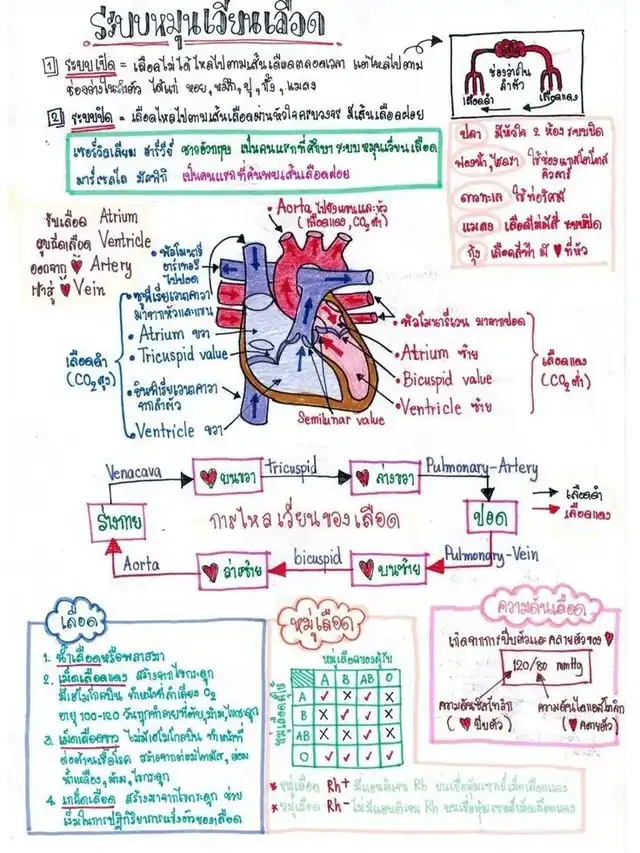 ระบบหมุนเวียนเลือด
1 ระบบเปิด = เลือดไม่ได้ไหลไปตามเส้นเลือดตลอดเวลา แต่ไหลไปตาม
ช่องว่างในลำตัว ได้แก่ หอย, หมึก, ปู, กุ้ง, แมลง
2 ระบบปิด = เลือดไหลไปตามเส้นเลือดผ่านหัวใจครบวงจร มีเส้นเลือดฝอย
ช่องว่างใน
ลำตัว
เลือดดำ
เลือดแดง
เซอร์วิลเลียม ฮาร์วีย์ ชาวอังกฤษ เป็นคนแรกที่ศึกษา ระบบหมุนเวียนเลือด
มาร์เซลโล มัลพิกิ เป็นคนแรกที่ค้นพบเส้นเลือดฝอย
ปลา มีหัวใจ 2 ห้อง ระบบปิด
ฟองน้ำ, ไฮดรา ใช้ช่องแกสโตรวาส
คิวลาร์
ดาวทะเล ใช้ท่อรัศมี
แมลง เลือดไม่มีสี ระบบเปิด
กุ้ง เลือดสีฟ้า มี ♥ ที่หัว
รับเลือด Atrium
สูบฉีดเลือด Ventricle
ออกจาก ♥ Artery
เข้าสู่ ♥ Vein
• Aorta ไปยังแขนและหัว
(เลือดแดง, CO2 ต่ำ)
• พัลโมนารี
อาร์เทอรี
ไปปอด
• ซุพีเรียเวนาคาวา
มาจากหัวและแขน
• Atrium ขวา
• Tricuspid value
• อินฟีเรียเวนาคาวา
จากลำตัว
• Ventricle ขวา
เลือดดำ
(CO2 สูง)
• พัลโมนารีเวน มาจากปอด
• Atrium ซ้าย
• Bicuspid value
• Ventricle ซ้าย
Semilunar value
เลือดแดง
(CO2 ต่ำ)
Venacava
♥ บนขวา
tricuspid
♥ ล่างขวา
Pulmonary-Artery
ร่างกาย
การไหลเวียนของเลือด
ปอด
→ เลือดดำ
→ เลือดแดง
Aorta
♥ ล่างซ้าย
bicuspid
♥ บนซ้าย
Pulmonary-Vein
เลือด
1. น้ำเลือดหรือพลาสมา
2. เม็ดเลือดแดง สร้างจากไขกระดูก
มีฮีโมโกลบิน ทำหน้าที่ลำเลียง O2
อายุ 100-120 วันถูกทำลายที่ตับ, ม้าม, ไขกระดูก
3. เม็ดเลือดขาว ไม่มีฮีโมโกลบิน ทำหน้าที่
ต่อต้านเชื้อโรค สร้างจากต่อมไทมัส, ต่อม
น้ำเหลือง, ม้าม, ไขกระดูก
4. เกล็ดเลือด สร้างมาจากไขกระดูก ช่วย
เริ่มในการปฏิกิริยาการแข็งตัวของเลือด
หมู่เลือด
หมู่เลือดของผู้รับ
หมู่เลือดผู้ให้
A B AB O
A ✓ X ✓ X
B X ✓ ✓ X
AB X X ✓ X
O ✓ ✓ ✓ ✓
* หมู่เลือด Rh+ มีแอนติเจน Rh บนเยื่อหุ้มเซลล์เม็ดเลือดแดง
* หมู่เลือด Rh- ไม่มีแอนติเจน Rh บนเยื่อหุ้มเซลล์เม็ดเลือดแดง
ความดันเลือด
เกิดจากการบีบตัวและคลายตัวของ ♥
120/80 mmHg
ความดันซิสโทลิก
(♥ บีบตัว)
ความดันไดแอสโตลิก
(♥ คลายตัว)